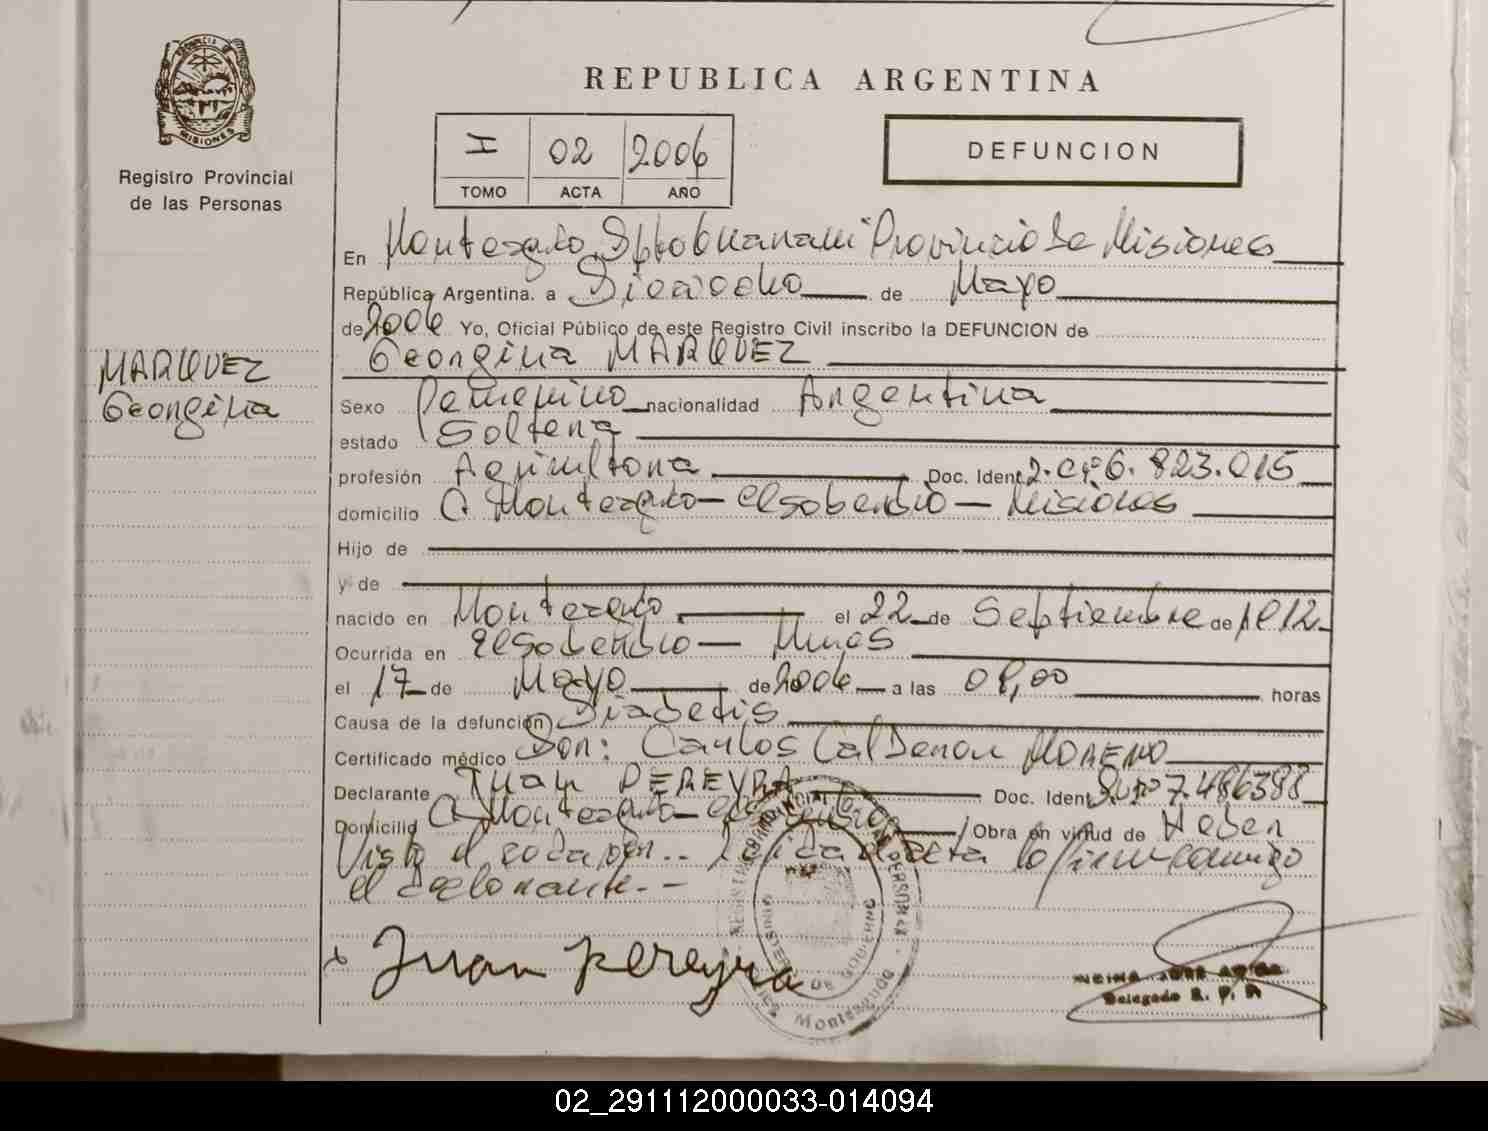 REPUBLICA ARGENTINA
PROVINCIA DE
MISIONES
Registro Provincial
de las Personas
I 02 2006
TOMO ACTA AÑO
DEFUNCION
En Monteagudo Dpto Guarani Provincia de Misiones
República Argentina. a Dieciocho de Mayo
de 2006 Yo, Oficial Público de este Registro Civil inscribo la DEFUNCION de
Georgina MARQUEZ
MARQUEZ
Georgina
Sexo Femenino nacionalidad Argentina
estado Soltera
profesión Agricultora Doc. Ident. 6.823.015
domicilio Monteagudo - El soberbio - Misiones
Hijo de
y de
nacido en Monteagudo el 22 de Septiembre de 1912
Ocurrida en El soberbio - Mnes
el 17 de Mayo de 2006 a las 08,00 horas
Causa de la defunción Diabetis
Certificado médico Don: Carlos Calderon MORENO
Declarante Juan PEREYRA Doc. Ident. 7.486388
Domicilio Monteagudo Obra en virtud de Haber
Visto el Leida el acta la firma conmigo
el declarante. -
Juan pereyra
Delegado R. P. P.
MINISTERIO DE GOBIERNO
Monteagudo
02_291112000033-014094